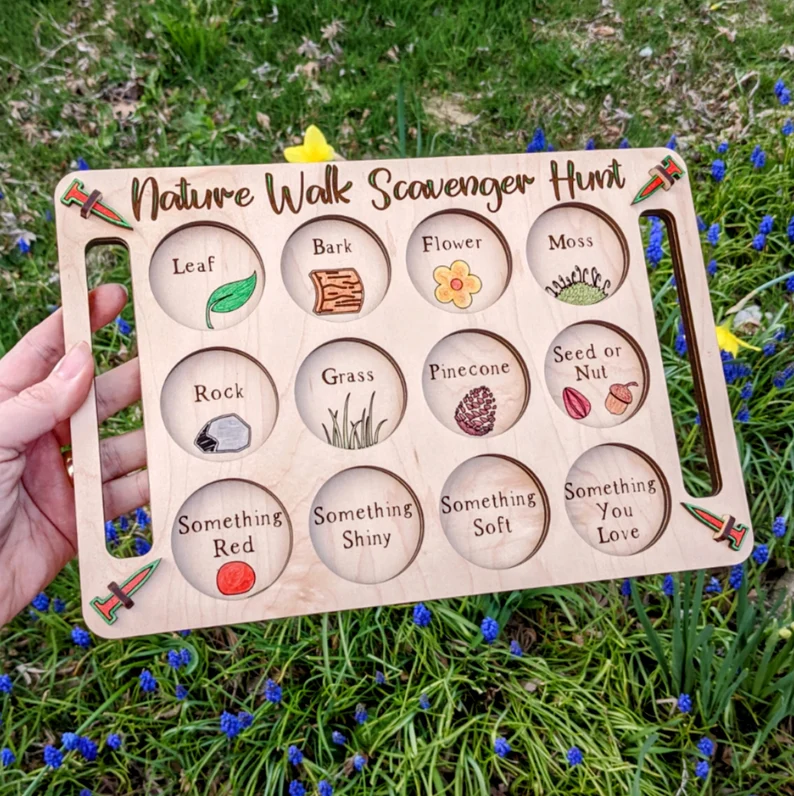 Nature Walk Scavenger Hunt
Leaf
Bark
Flower
Moss
Rock
Grass
Pinecone
Seed or
Nut
Something
Red
Something
Shiny
Something
Soft
Something
You
Love